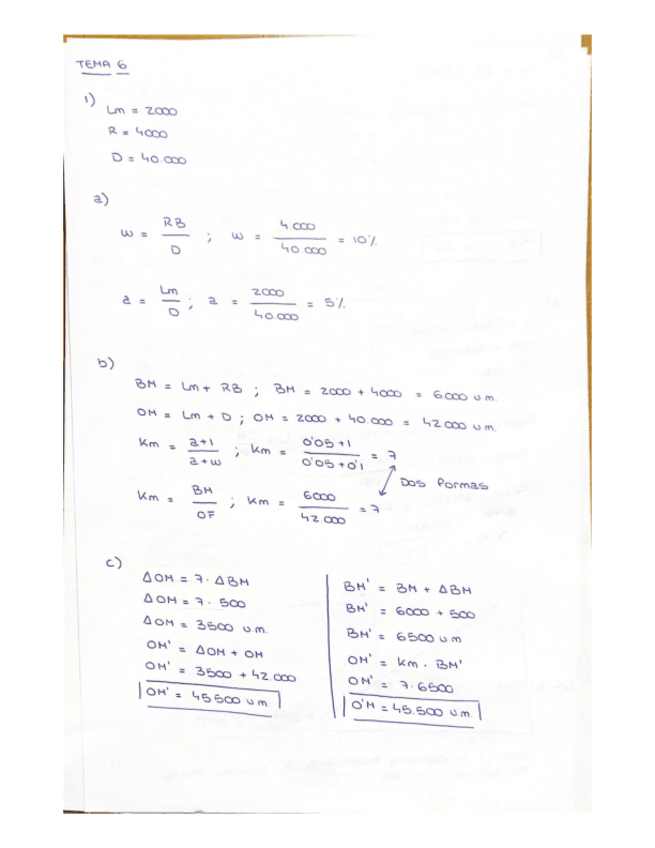 TEMA 6
1)
Lm = 2000
R = 4000
D = 40.000
a)
w = RB / D ; w = 4.000 / 40.000 = 10%
a = Lm / D ; a = 2000 / 40.000 = 5%
b)
BM = Lm + RB ; BM = 2000 + 4000 = 6000 u m.
OM = Lm + D ; OM = 2000 + 40.000 = 42.000 u m.
Km = a+1 / a+w ; Km = 0'05+1 / 0'05+0'1 = 7
Dos formas
Km = BM / OF ; Km = 6000 / 42.000 = 7
c)
ΔOM = 7· ΔBM
ΔOM = 7· 500
ΔOM = 3500 u m.
OM' = ΔOM + OM
OM' = 3500 + 42 000
OM' = 45500 u m.
BM' = BM + ΔBM
BM' = 6000 + 500
BM' = 6500 u m
OM' = Km · BM'
OM' = 7·6500
O'M = 45.500 u m.